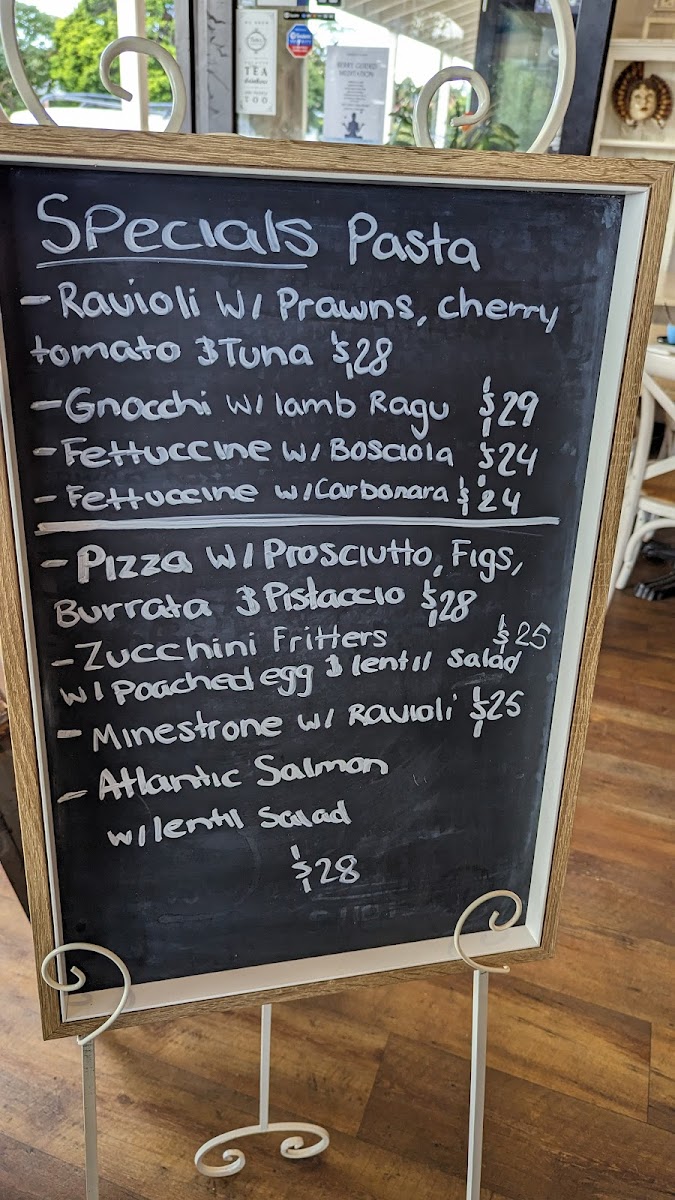 TEA
TOO
MEDITATION
Specials Pasta
- Ravioli w/ Prawns, cherry
tomato & Tuna $28
- Gnocchi w/ lamb Ragu $29
- Fettuccine w/ Bosciola $24
- Fettuccine w/ Carbonara $24
- Pizza w/ Prosciutto, Figs,
Burrata & Pistaccio $28
- Zucchini Fritters $25
w/ Poached egg & lentil salad
- Minestrone w/ Ravioli $25
- Atlantic Salmon
w/ lentil Salad
$28